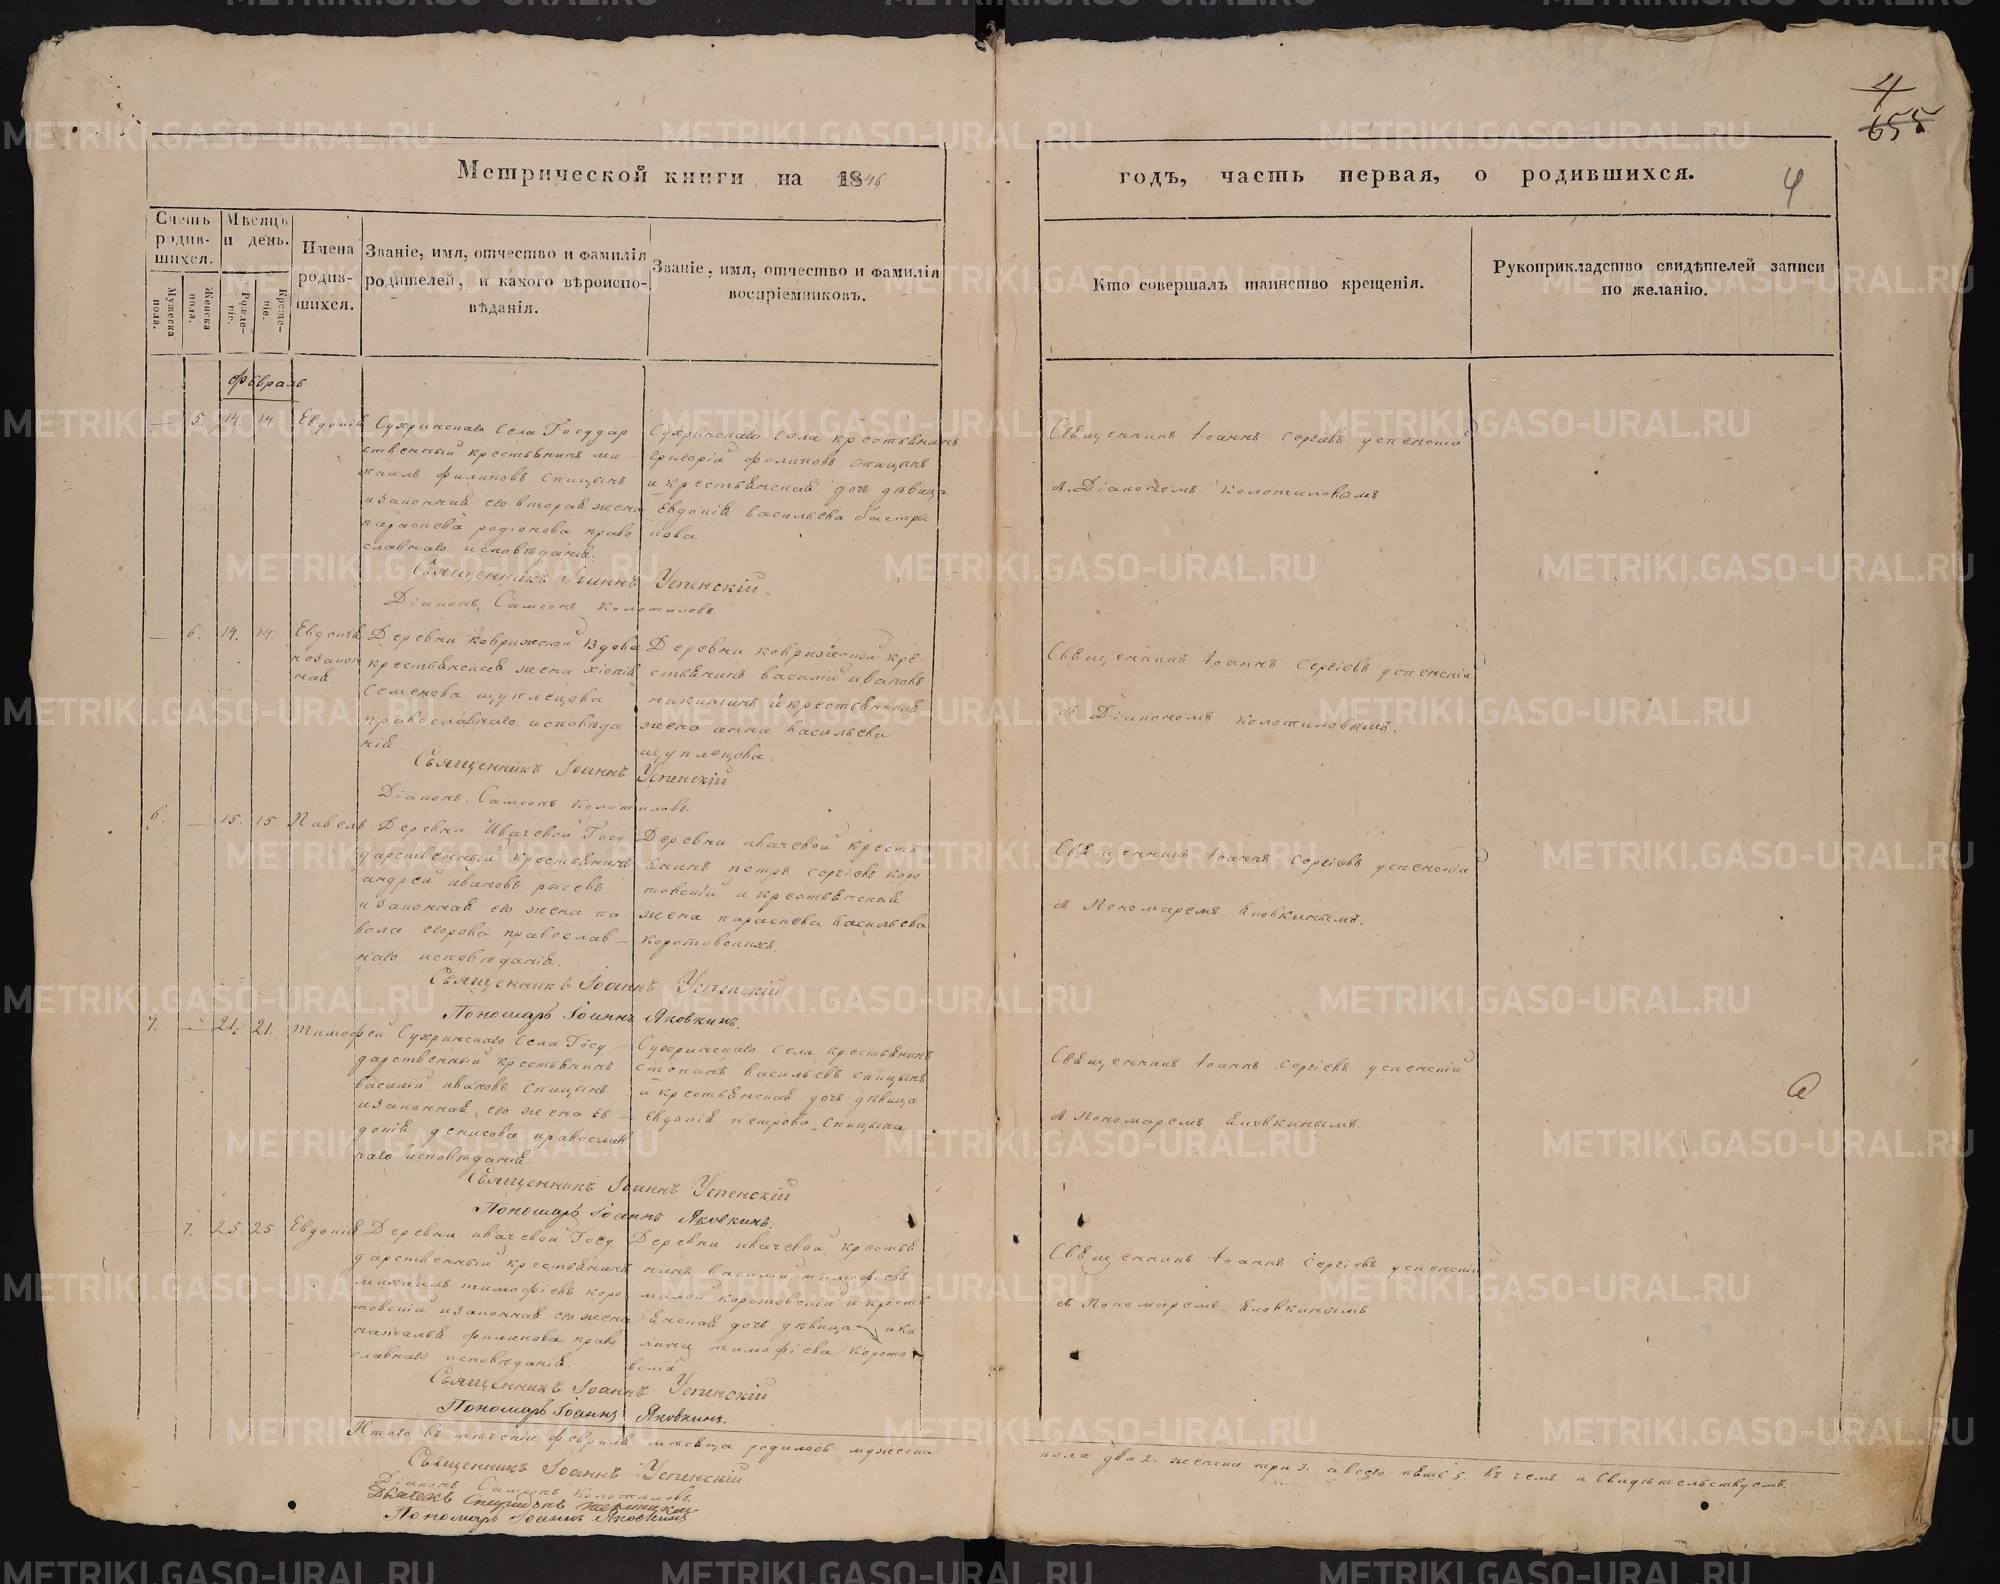 4
655
Метрической книги на 1846
годъ, часть первая, о родившихся.
4
Счетъ родив-шихся.
Мужеска пола.
Женска пола.
Мѣсяцъ и день.
Рожде-ніе.
Креще-ніе.
Имена родив-шихся.
Званіе, имя, отчество и фамилія
родителей, и какого вѣроиспо-
вѣданія.
Званіе, имя, отчество и фамилія
воспріемниковъ.
Кто совершалъ таинство крещенія.
Рукоприкладство свидѣтелей записи
по желанію.
февраль
5. 14. 14. Евдокія
Сухринскаго села Государ
ственный крестьянинъ ми-
хаилъ филиповъ спицынъ
и законная его вторая жена
параскева родіонова право
славнаго исповѣданія.
Сухринскаго села крестьянинъ
григорій филиповъ спицынъ
и крестьянская дочь дѣвица
Евдокія васильева
Священникъ Іоаннъ Сергіевъ успенскій
съ Діакономъ колотиловымъ
Священникъ Іоаннъ Успенскій
Діаконъ Самсонъ колотиловъ
6. 14. 14. Евдокія
незакон
ная
Деревни ковриженской вдова
крестьянская жена хіонія
семенова щуплецова
православнаго исповѣда
нія
Деревни ковриженской кре
стьянинъ василій ивановъ
никитинъ и крестьянская
жена анна васильева
щуплецова.
Священникъ Іоаннъ Сергіевъ успенскій
съ Діакономъ колотиловымъ.
Священникъ Іоаннъ Успенскій
Діаконъ Самсонъ колотиловъ
6. 15. 15. Павелъ
Деревни Ивачевой Госу
дарственный крестьянинъ
андрей ивановъ
и законная его жена па
вла егорова православ-
наго исповѣданія.
Деревни ивачевой крестья
янинъ петръ сергіевъ коро
товскій и крестьянская
жена параскева васильева
коротовскихъ.
Священникъ Іоаннъ Сергіевъ успенскій
съ Пономаремъ яковкинымъ.
Священникъ Іоаннъ Успенскій
Пономарь Іоаннъ Яковкинъ.
7. 21. 21. тимофей
Сухринскаго села Госу-
дарственный крестьянинъ
василій ивановъ спицынъ
и законная его жена ев-
докія денисова православ
наго исповѣданія.
Сухринскаго села крестьянинъ
степанъ васильевъ спицынъ
и крестьянская дочь дѣвица
евдокія петрова спицына
Священникъ Іоаннъ Сергіевъ успенскій
съ Пономаремъ яковкинымъ.
Священникъ Іоаннъ Успенскій
Пономарь Іоаннъ Яковкинъ.
7. 25. 25 Евдокія
Деревни ивачевой Госу
дарственный крестьянинъ
михаилъ тимофіевъ коро
товскій и законная его жена
наталья филипова право
славнаго исповѣданія.
Деревни ивачевой крестья
нинъ василій тимофіевъ
малой коротовскій и кресть
янская дочь дѣвица аки
лина тимофіева корото
вскій
Священникъ Іоаннъ Сергіевъ успенскій
съ Пономаремъ яковкинымъ
Священникъ Іоаннъ Успенскій
Пономарь Іоаннъ Яковкинъ.
Итого въ теченіи февраля мѣсяца родилось мужеска
пола два 2. женска три 3. а всего пять 5. въ чемъ и Свидѣтельствуемъ.
Священникъ Іоаннъ Успенскій
Діаконъ Самсонъ Колотиловъ
Дьячекъ Спиридонъ
Пономарь Іоаннъ Яковкинъ
METRIKI.GASO-URAL.RU